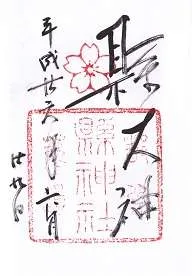 縣大神
縣神社
平成廿六年六月